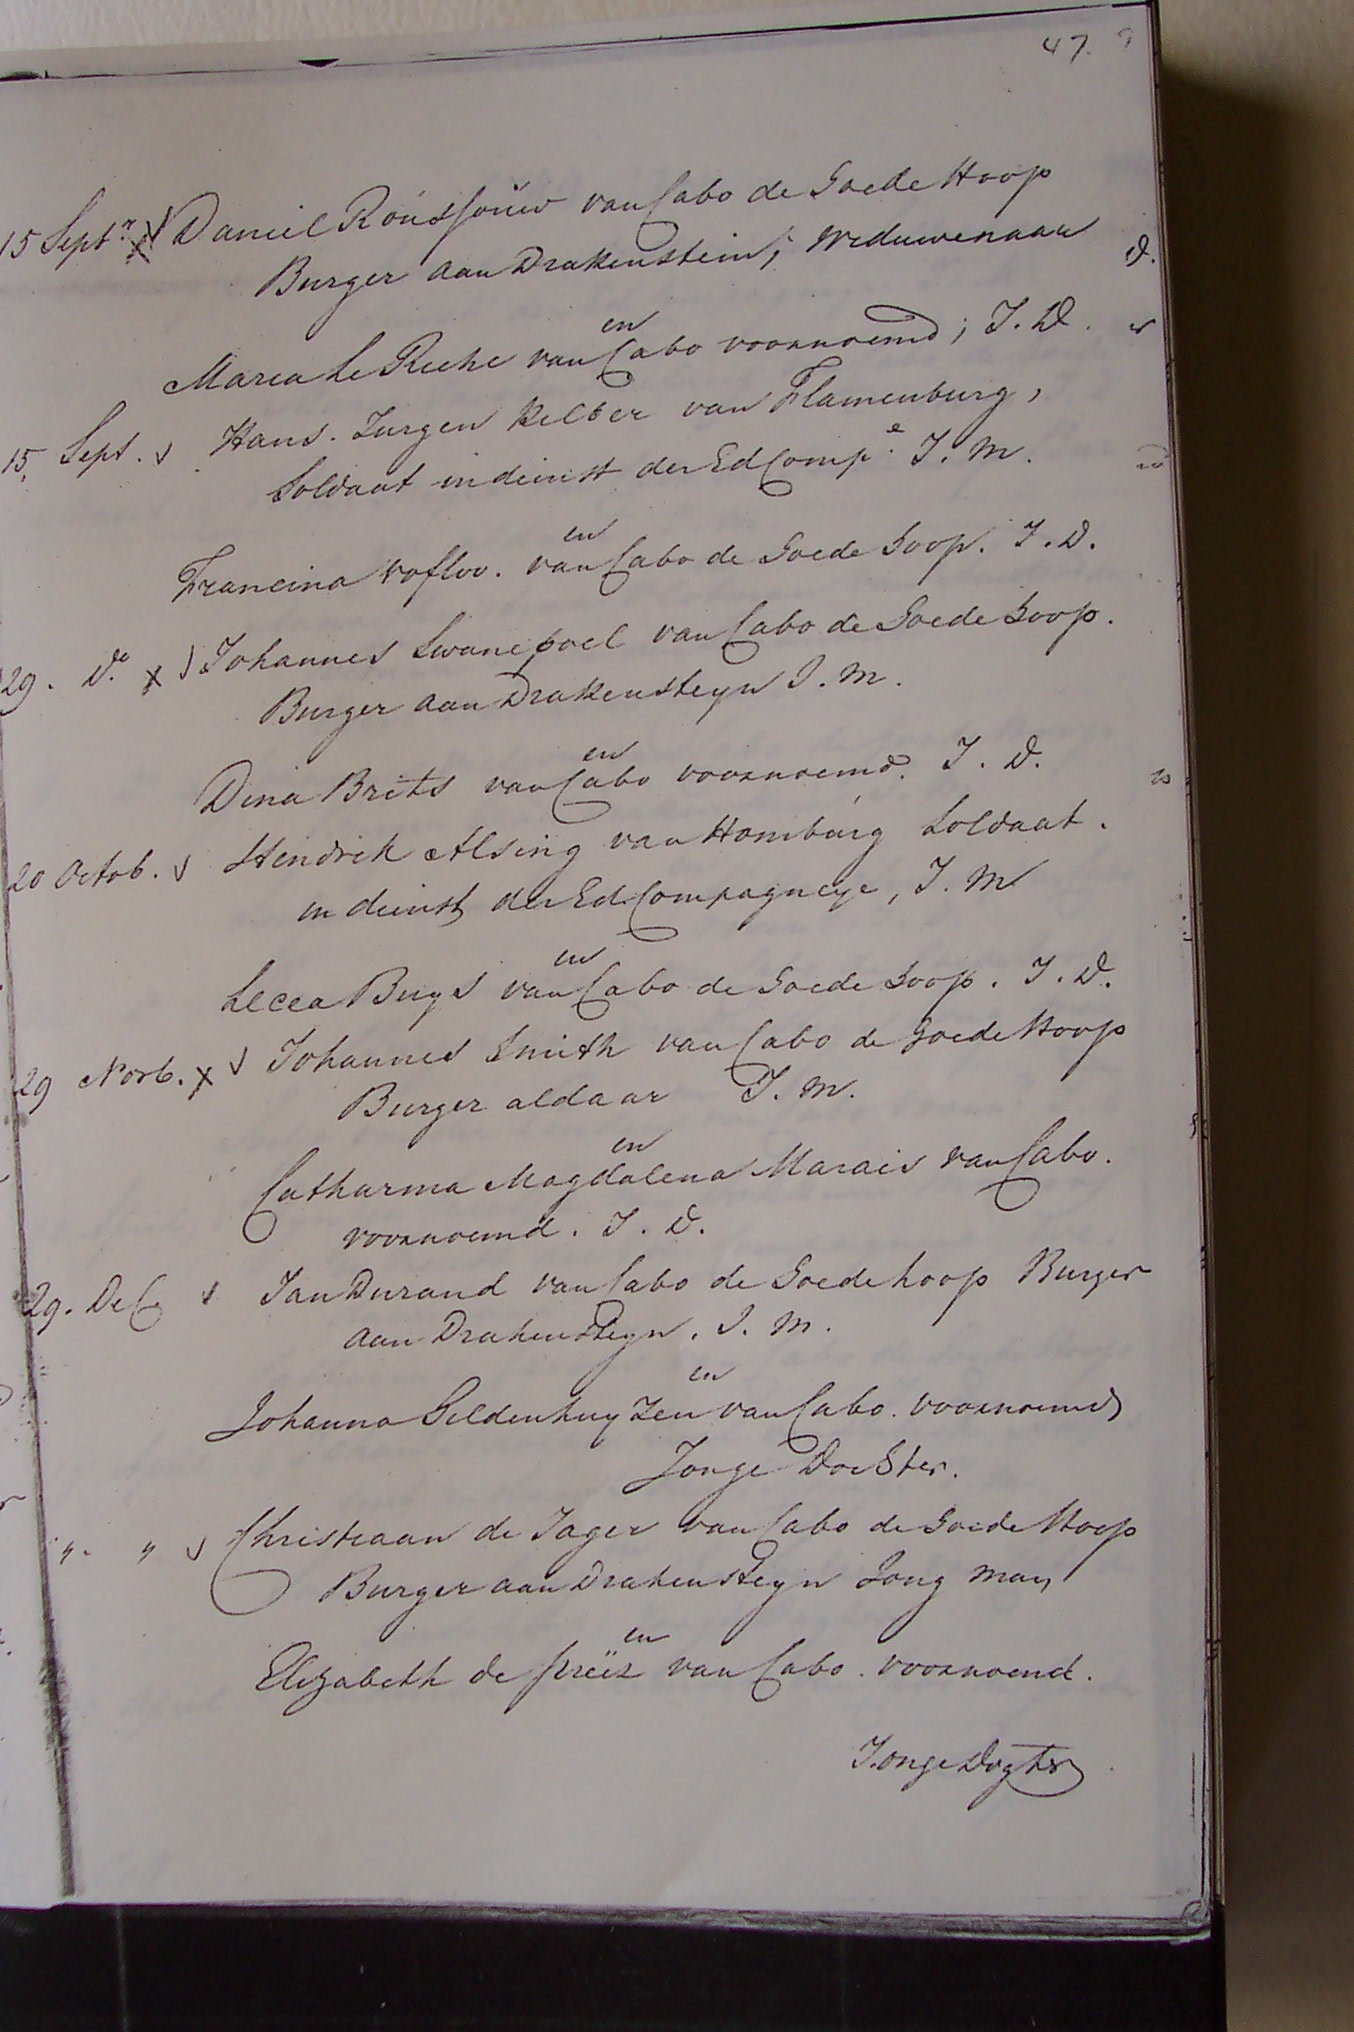 47.
15 Septr. Daniel Roúsſoúw van Cabo de Goede Hoop
Burger aan Drakenstein; Weduwenaar
en
Maria le Riche van Cabo voornoemd; J. D.
15, Sept. Hans Jurgen Kelber van Flamenburg,
Soldaat in deinst der Ed Compe. J. M.
en
Francina van Cabo de Goede Hoop. J. D.
29. Do. x Johannes Swanepoel van Cabo de Goede Hoop.
Burger aan Drakensteyn J. M.
en
Dina Brits van Cabo voornoemd. J. D.
20 Octob. Hendrik Alsing van Hombúrg Soldaat.
in deinst der Ed. Compagneije, J. M
en
Lecea Buys van Cabo de Goede Hoop. J. D.
29 Novb. x Johannes Smith van Cabo de Goede Hoop
Burger aldaar J. M.
en
Catharina Magdalena Marais van Cabo.
voornoemd. J. D.
29. Dec Jan Durand van Cabo de Goede hoop Burger
aan Drakensteyn. J. M.
en
Johanna Geldenhuyzen van Cabo. voornoemd
Jonge Docter.
" " Christiaan de Jager van Cabo de Goede Hoop
Burger aan Drakensteyn Jong man
en
Elizabeth de preéz van Cabo. voornoemd.
Jonge Dogter